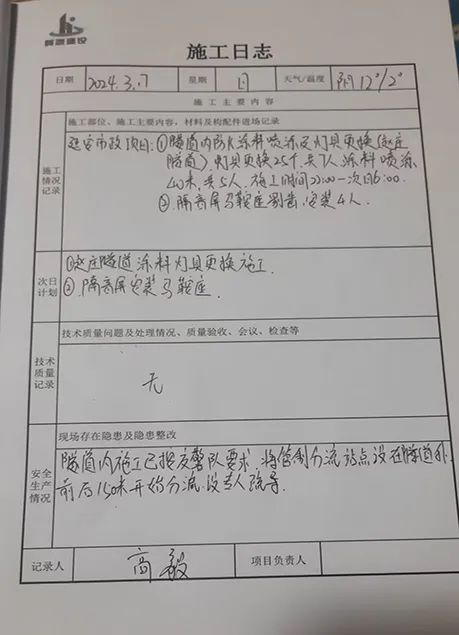 施工日志
日期 2024.3.7 星期 日 天气/温度 阴12°/2°
施工主要内容
施工情况记录
施工部位、施工主要内容，材料及构配件进场记录
延安市政项目：①隧道内防火涂料喷涂及灯具更换（赵庄
隧道）灯具更换25个，共7人，涂料喷涂
40米，共5人，施工时间22:00—次日6:00.
②隔离屏马鞍座割凿，安装4人.
次日计划
①赵庄隧道涂料灯具更换施工.
②隔离屏安装马鞍座.
技术质量记录
技术质量问题及处理情况、质量验收、会议、检查等
无
安全生产情况
现场存在隐患及隐患整改
隧道内施工已按交警队要求，将管制分流站点设在隧道外，
前后150米开始分流，设专人疏导.
记录人 高毅 项目负责人